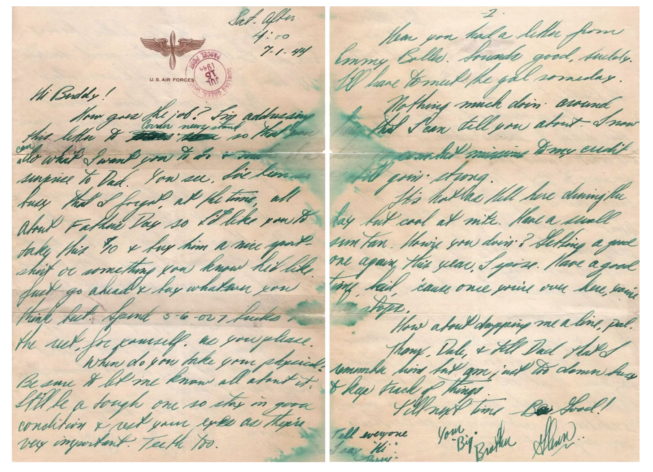 Sat. After
4:00
7-1-44
U.S. AIR FORCES
Hi Buddy!
How goes the job? I'm addressing
this letter to so that you
can do what I want you to do & 
surprise to Dad. You see, I've been
busy that I forgot, at the time, all
about Fathers Day so I'd like you to
take this 10 & buy him a nice sport
shirt or something you know he'd like.
Just go ahead & buy whatever you
think best. Spend 5-6-or 7 bucks &
the rest, for yourself, as you please.
When do you take your physical?
Be sure to let me know all about it.
It'll be a tough one so stay in good
condition & rest your eyes as they're
very important. Teeth too.
2.
Hear you had a letter from
Emmy Boller. Sounds good, buddy.
I'll have to meet the gal someday.
Nothing much doin' around
that I can tell you about. I now
combat missions to my credit
goin' strong.
It's hot as Hell here during the
day but cool at nite. Have a swell
sun tan. How're you doin'? Getting a good
one again, this year, I s'pose. Have a good
time, kid, 'cause once you're over here, you're
stops.
How about dropping me a line, pal.
Thanx, Dale, & tell Dad that I
remember him but am just too damn busy
to keep track of things.
Till next time Be Good!
Your
Big
Brother
Glenn
Tell everyone
Hi